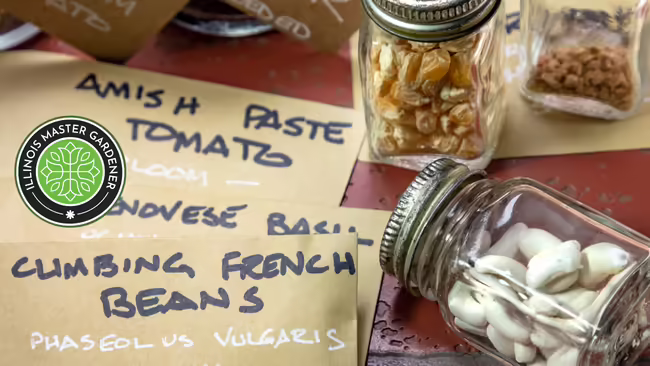 TOMATO
AMISH PASTE
TOMATO
LOOM —
ILLINOIS MASTER GARDENER
ENOVESE BASIL
CLIMBING FRENCH
BEANS
PHASEOLUS VULGARIS